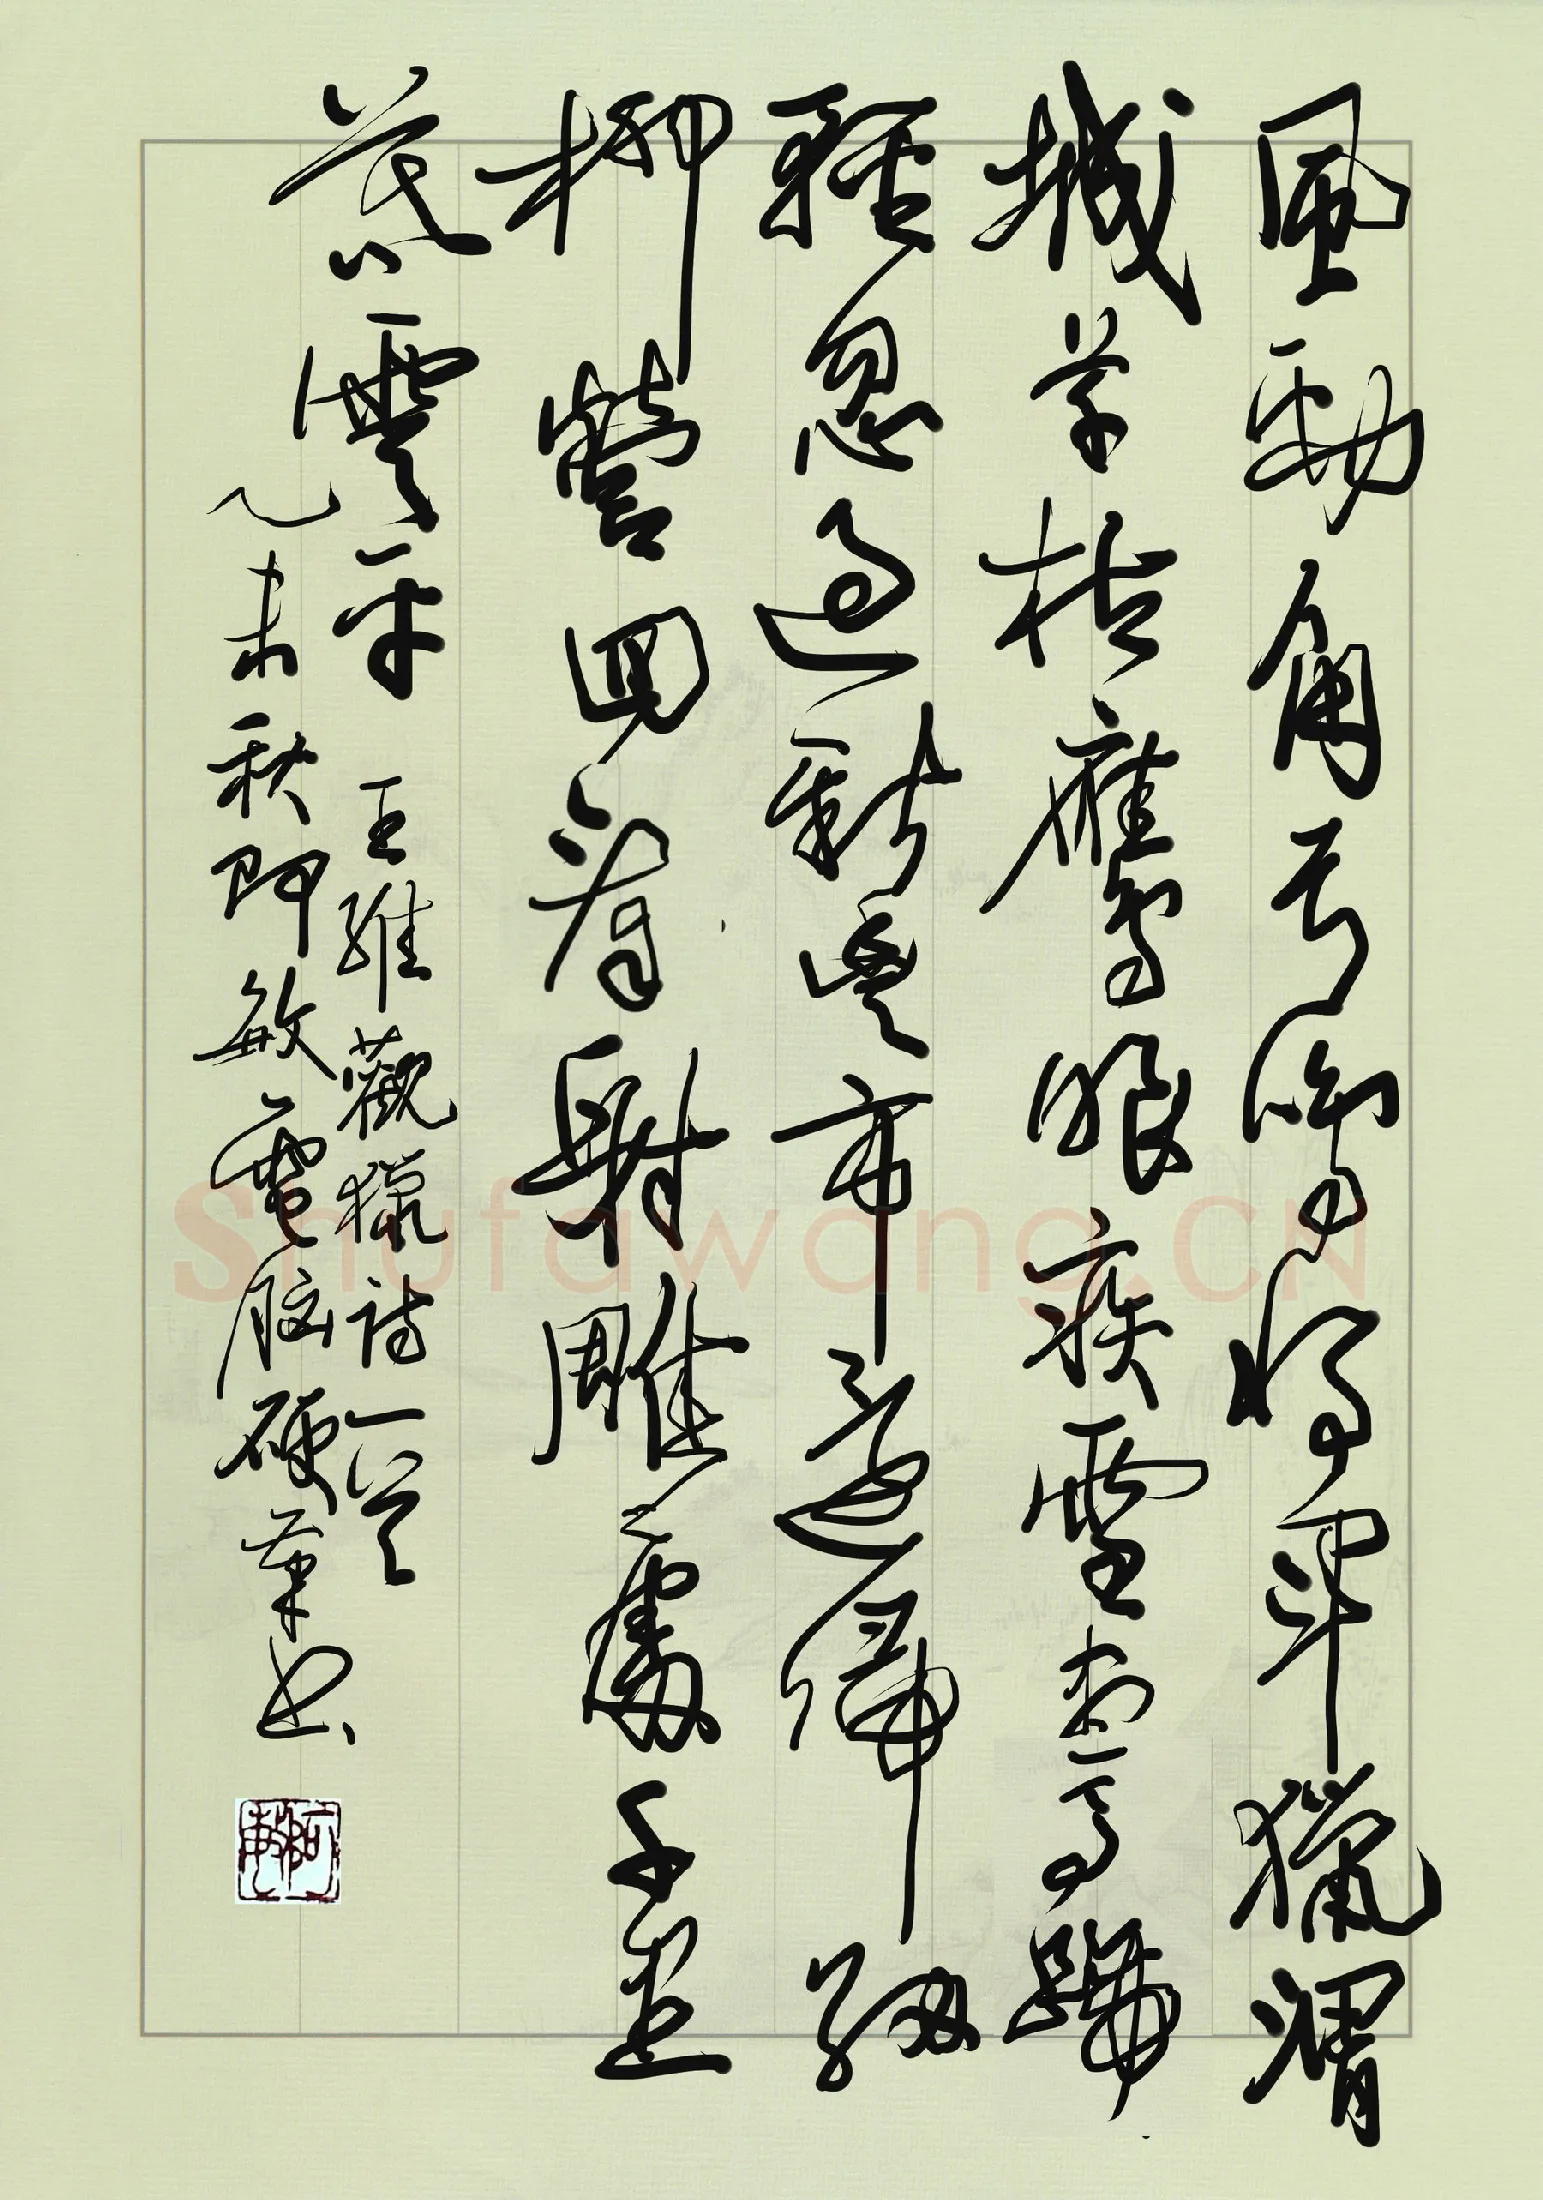 風勁角弓鳴將軍獵渭
城草枯鷹眼疾雪盡馬蹄
輕忽過新豐市還歸細
柳營回看射雕處千里
暮雲平 王維觀獵詩一首
乙未秋阿敏電腦硬筆書
Shufawang.CN